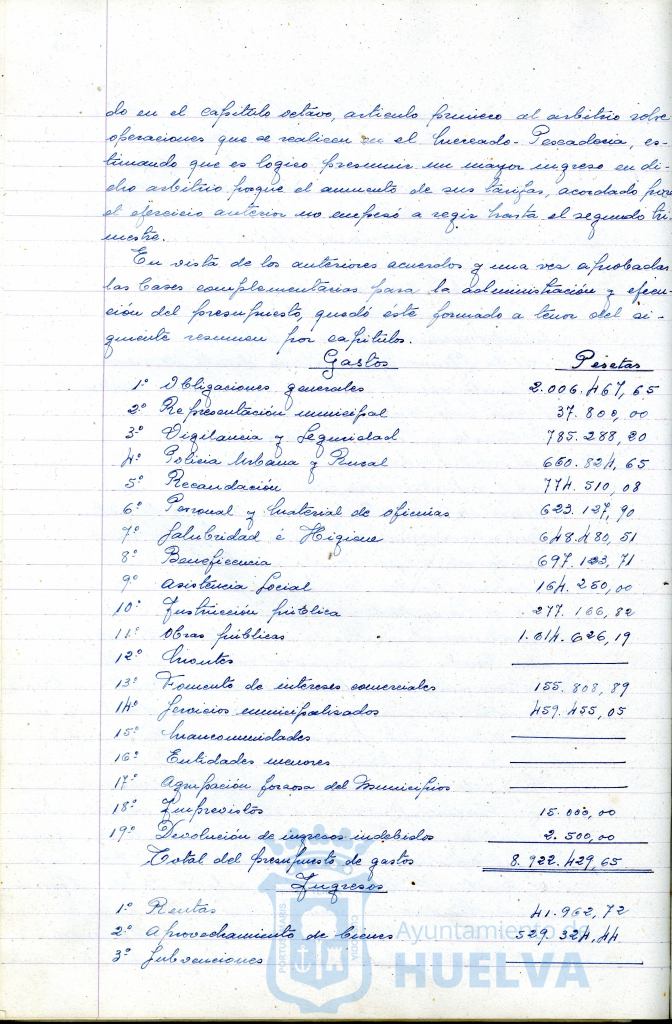 do en el capítulo octavo, artículo primero al arbitrio sobre
operaciones que se realicen en el Mercado-Pescadería, es-
timando que es logico presumir un mayor ingreso en di-
cho arbitrio porque el aumento de sus tarifas, acordado para
el ejercicio anterior no empesó a regir hasta el segundo tri-
mestre.
En vista de los anteriores acuerdos y una vez aprobadas
las bases complementarias para la administración y ejecu-
ción del presupuesto, quedó éste formado a tenor del si-
guiente resumen por capítulos.
Gastos Pesetas
1º Obligaciones generales 2.006.467,65
2º Representación municipal 37.800,00
3º Vigilancia y Seguridad 785.288,20
4º Policia Urbana y Rural 660.824,65
5º Recaudación 774.510,08
6º Personal y Material de oficinas 623.127,90
7º Salubridad é Higiene 648.480,51
8º Beneficencia 697.123,71
9º Asistencia Social 164.250,00
10º Instrucción pública 277.166,82
11º Obras públicas 1.614.626,19
12º Montes
13º Fomento de intereses comerciales 155.808,89
14º Servicios municipalizados 459.455,05
15º Mancomunidades
16º Entidades menores
17º Agrupación forzosa del Municipios
18º Imprevistos 15.000,00
19º Devolución de ingresos indebidos 2.500,00
Total del presupuesto de gastos 8.922.429,65
Ingresos
1º Rentas 41.962,72
2º Aprovechamiento de bienes 529.324,44
3º Subvenciones
Ayuntamiento de
HUELVA